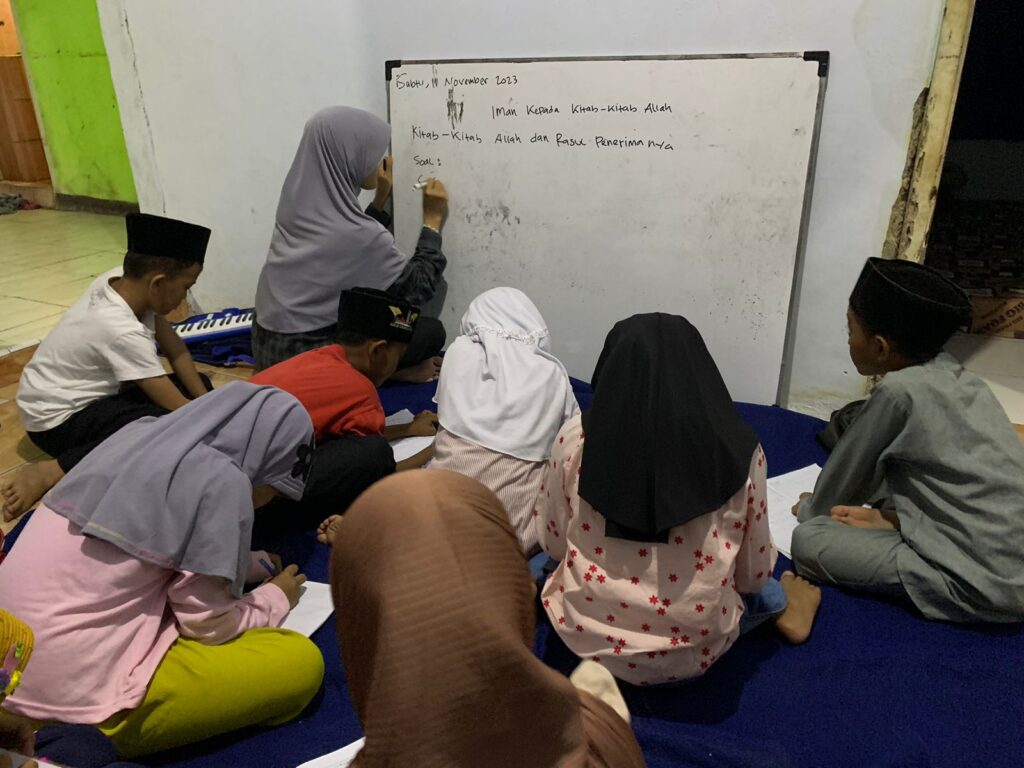 Sabtu, 11 November 2023
Iman Kepada Kitab-Kitab Allah
Kitab-Kitab Allah dan Rasul Penerimanya
Soal :